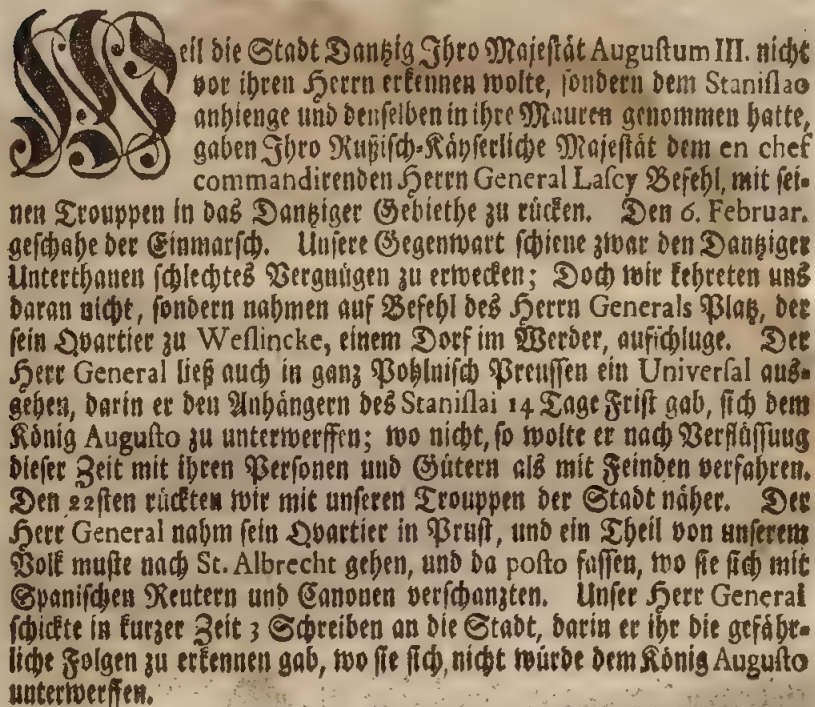 Weil die Stadt Dantzig Ihro Majestät Augustum III. nicht
vor ihren Herrn erkennen wolte, sondern dem Stanislao
anhienge und denselben in ihre Mauren genommen hatte,
gaben Ihro Rußisch-Käyserliche Majestät dem en chef
commandirenden Herrn General Lascy Befehl, mit sei-
nen Trouppen in das Dantziger Gebiethe zu rücken. Den 6. Februar.
geschahe der Einmarsch. Unsere Gegenwart schiene zwar den Dantziger
Unterthanen schlechtes Vergnügen zu erwecken; Doch wir kehreten uns
daran nicht, sondern nahmen auf Befehl des Herrn Generals Platz, der
sein Quartier zu Weslincke, einem Dorf im Werder, aufschluge. Der
Herr General ließ auch in gantz Pohlnisch Preussen ein Universal aus-
gehen, darin er den Anhängern des Stanislai 14 Tage Frist gab, sich dem
König Augusto zu unterwerffen; wo nicht, so wolte er nach Verflässuug
dieser Zeit mit ihren Personen und Gütern als mit Feinden verfahren.
Den 22sten rückten wir mit unseren Trouppen der Stadt näher. Der
Herr General nahm sein Quartier in Prust, und ein Theil von unserem
Volk muste nach St. Albrecht gehen, und da posto fassen, wo sie sich mit
Spanischen Reutern und Canonen verschanzten. Unser Herr General
schickte in kurzer Zeit 3 Schreiben an die Stadt, darin er ihr die gefähr-
liche Folgen zu erkennen gab, wo sie sich, nicht würde dem König Augusto
unterwerffen.